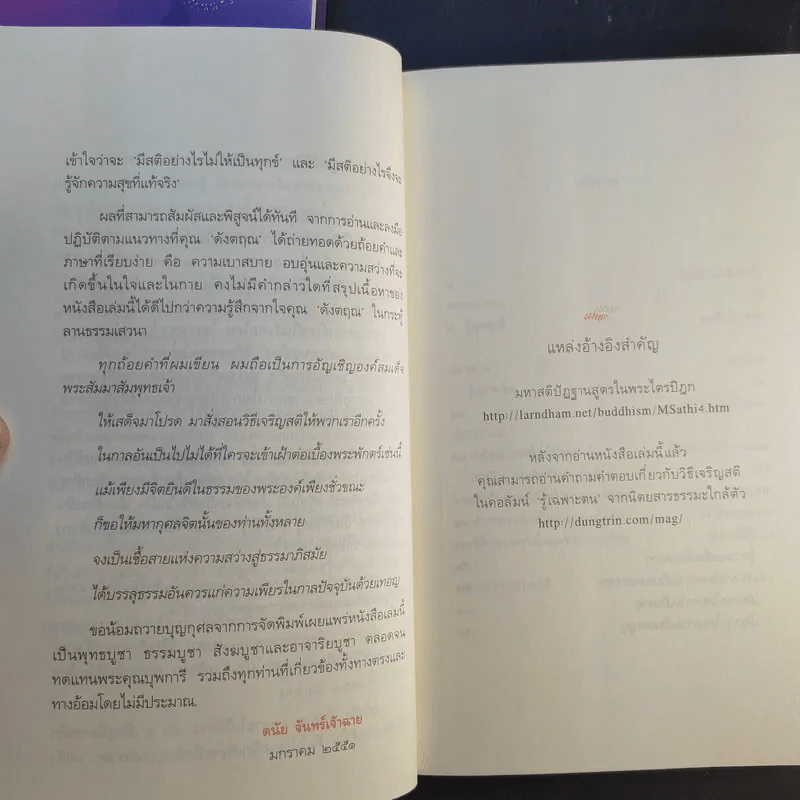 เข้าใจว่าจะ ‘มีสติอย่างไรไม่ให้เป็นทุกข์’ และ ‘มีสติอย่างไรจึงจะ
รู้จักความสุขที่แท้จริง’
ผลที่สามารถสัมผัสและพิสูจน์ได้ทันที จากการอ่านและลงมือ
ปฏิบัติตามแนวทางที่คุณ ‘ดังตฤณ’ ได้ถ่ายทอดด้วยถ้อยคำและ
ภาษาที่เรียบง่าย คือ ความเบาสบาย อบอุ่นและความสว่างที่จะ
เกิดขึ้นในใจและในกาย คงไม่มีคำกล่าวใดที่สรุปเนื้อหาของ
หนังสือเล่มนี้ได้ดีไปกว่าความรู้สึกจากใจคุณ ‘ดังตฤณ’ ในกระทู้
ลานธรรมเสวนา
ทุกถ้อยคำที่ผมเขียน ผมถือเป็นการอัญเชิญองค์สมเด็จ
พระสัมมาสัมพุทธเจ้า
ให้เสด็จมาโปรด มาสั่งสอนวิธีเจริญสติให้พวกเราอีกครั้ง
ในกาลอันเป็นไปไม่ได้ที่ใครจะเข้าเฝ้าต่อเบื้องพระพักตร์เช่นนี้
แม้เพียงมีจิตยินดีในธรรมของพระองค์เพียงชั่วขณะ
ก็ขอให้มหากุศลจิตนั้นของท่านทั้งหลาย
จงเป็นเชื้อสายแห่งความสว่างสู่ธรรมาภิสมัย
ได้บรรลุธรรมอันควรแก่ความเพียรในกาลปัจจุบันด้วยเทอญ
ขอน้อมถวายบุญกุศลจากการจัดพิมพ์เผยแพร่หนังสือเล่มนี้
เป็นพุทธบูชา ธรรมบูชา สังฆบูชาและอาจาริยบูชา ตลอดจน
ทดแทนพระคุณบุพการี รวมถึงทุกท่านที่เกี่ยวข้องทั้งทางตรงและ
ทางอ้อมโดยไม่มีประมาณ.
ดนัย จันทร์เจ้าฉาย
มกราคม ๒๕๕๑
แหล่งอ้างอิงสำคัญ
มหาสติปัฏฐานสูตรในพระไตรปิฎก
http://larndham.net/buddhism/MSathi4.htm
หลังจากอ่านหนังสือเล่มนี้แล้ว
คุณสามารถอ่านคำถามคำตอบเกี่ยวกับวิธีเจริญสติ
ในคอลัมน์ ‘รู้เฉพาะตน’ จากนิตยสารธรรมะใกล้ตัว
http://dungtrin.com/mag/